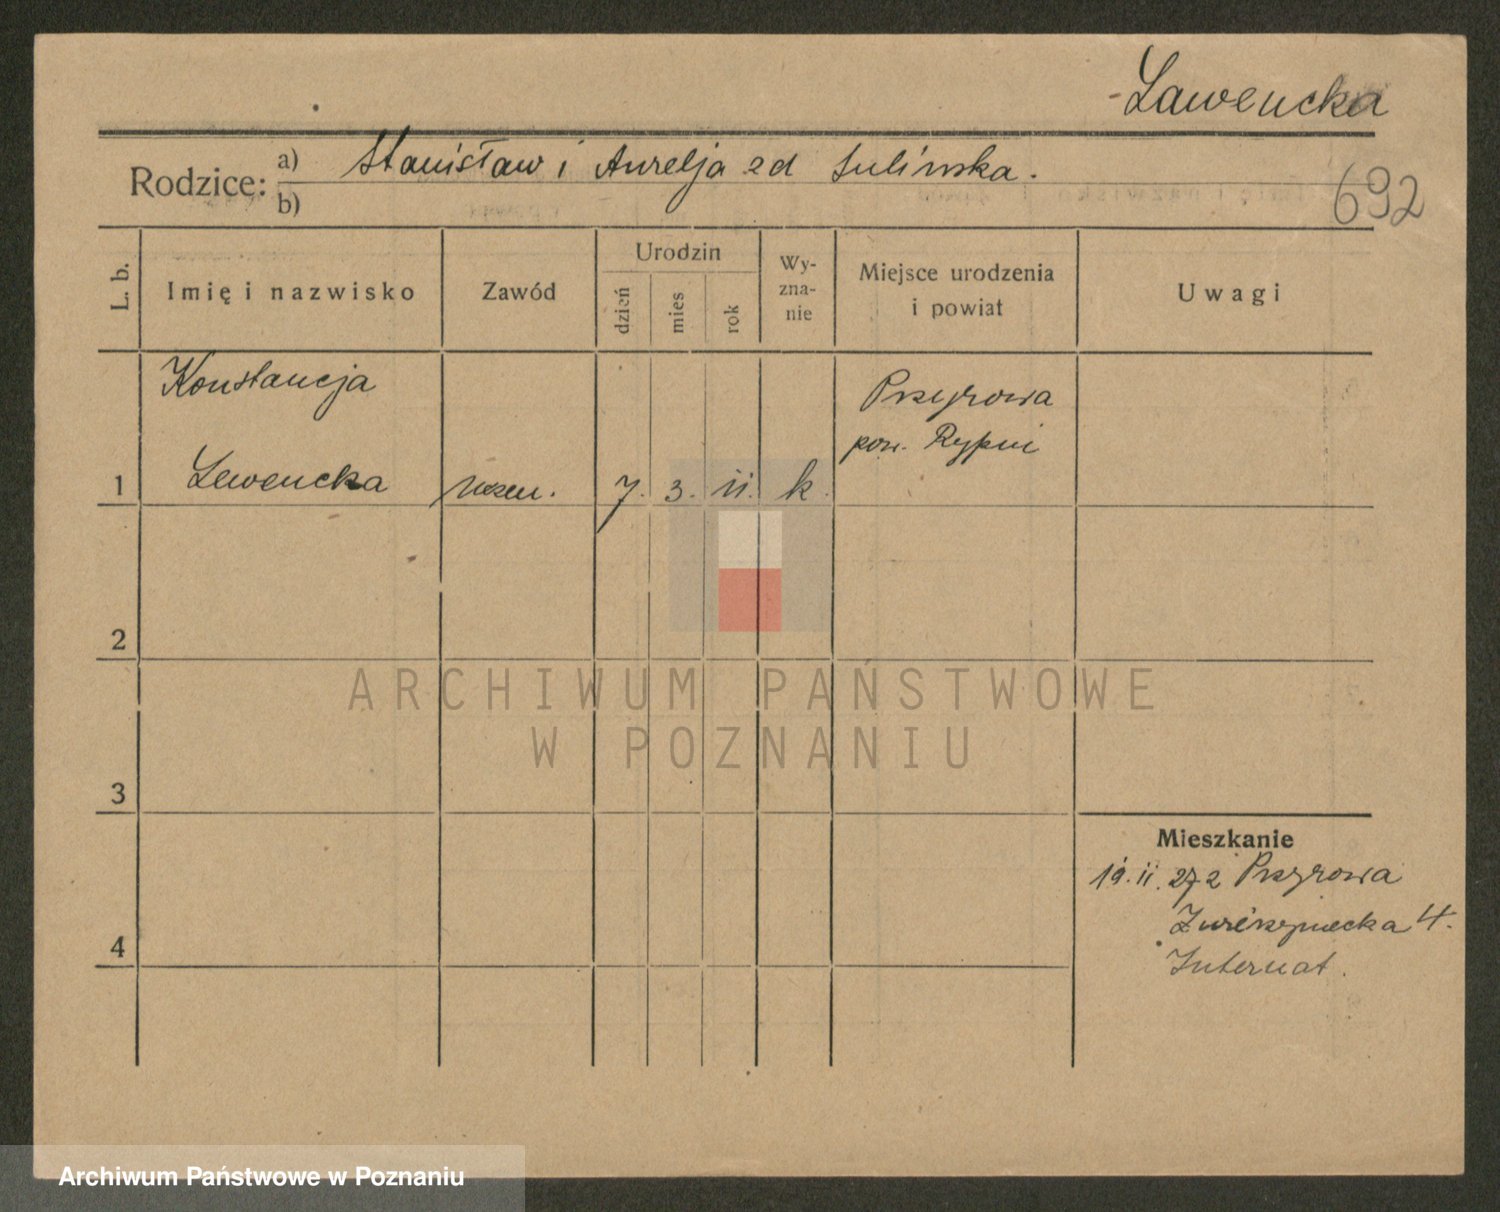 Lawencka
Rodzice: a) Stanisław i Aurelja zd Sulinska.
b)
692
L. b.
Imię i nazwisko
Zawód
Urodzin
dzień
mies
rok
Wy-
zna-
nie
Miejsce urodzenia
i powiat
Uwagi
Konstancja
Przyrowa
pow. Rypni
1 Lewencka uczen. 7. 3. 11. k.
2
ARCHIWUM PAŃSTWOWE
W POZNANIU
3
Mieszkanie
19. 11. 27 z Przyrowa
4.
4
Internat.
Archiwum Państwowe w Poznaniu